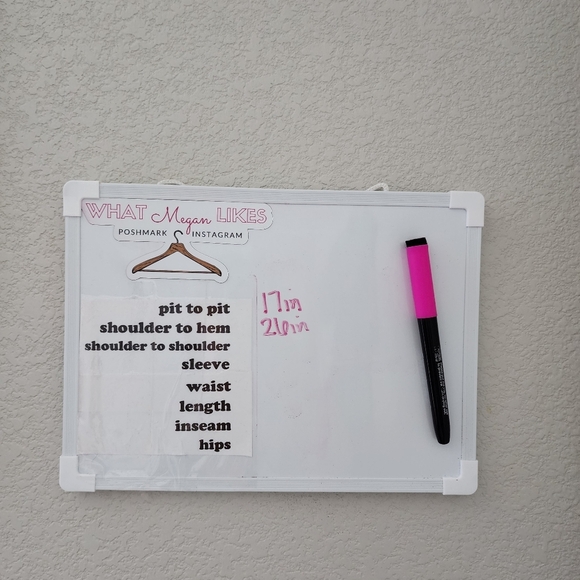 WHAT Megan LIKES
POSHMARK INSTAGRAM
pit to pit 17in
shoulder to hem 26in
shoulder to shoulder
sleeve
waist
length
inseam
hips